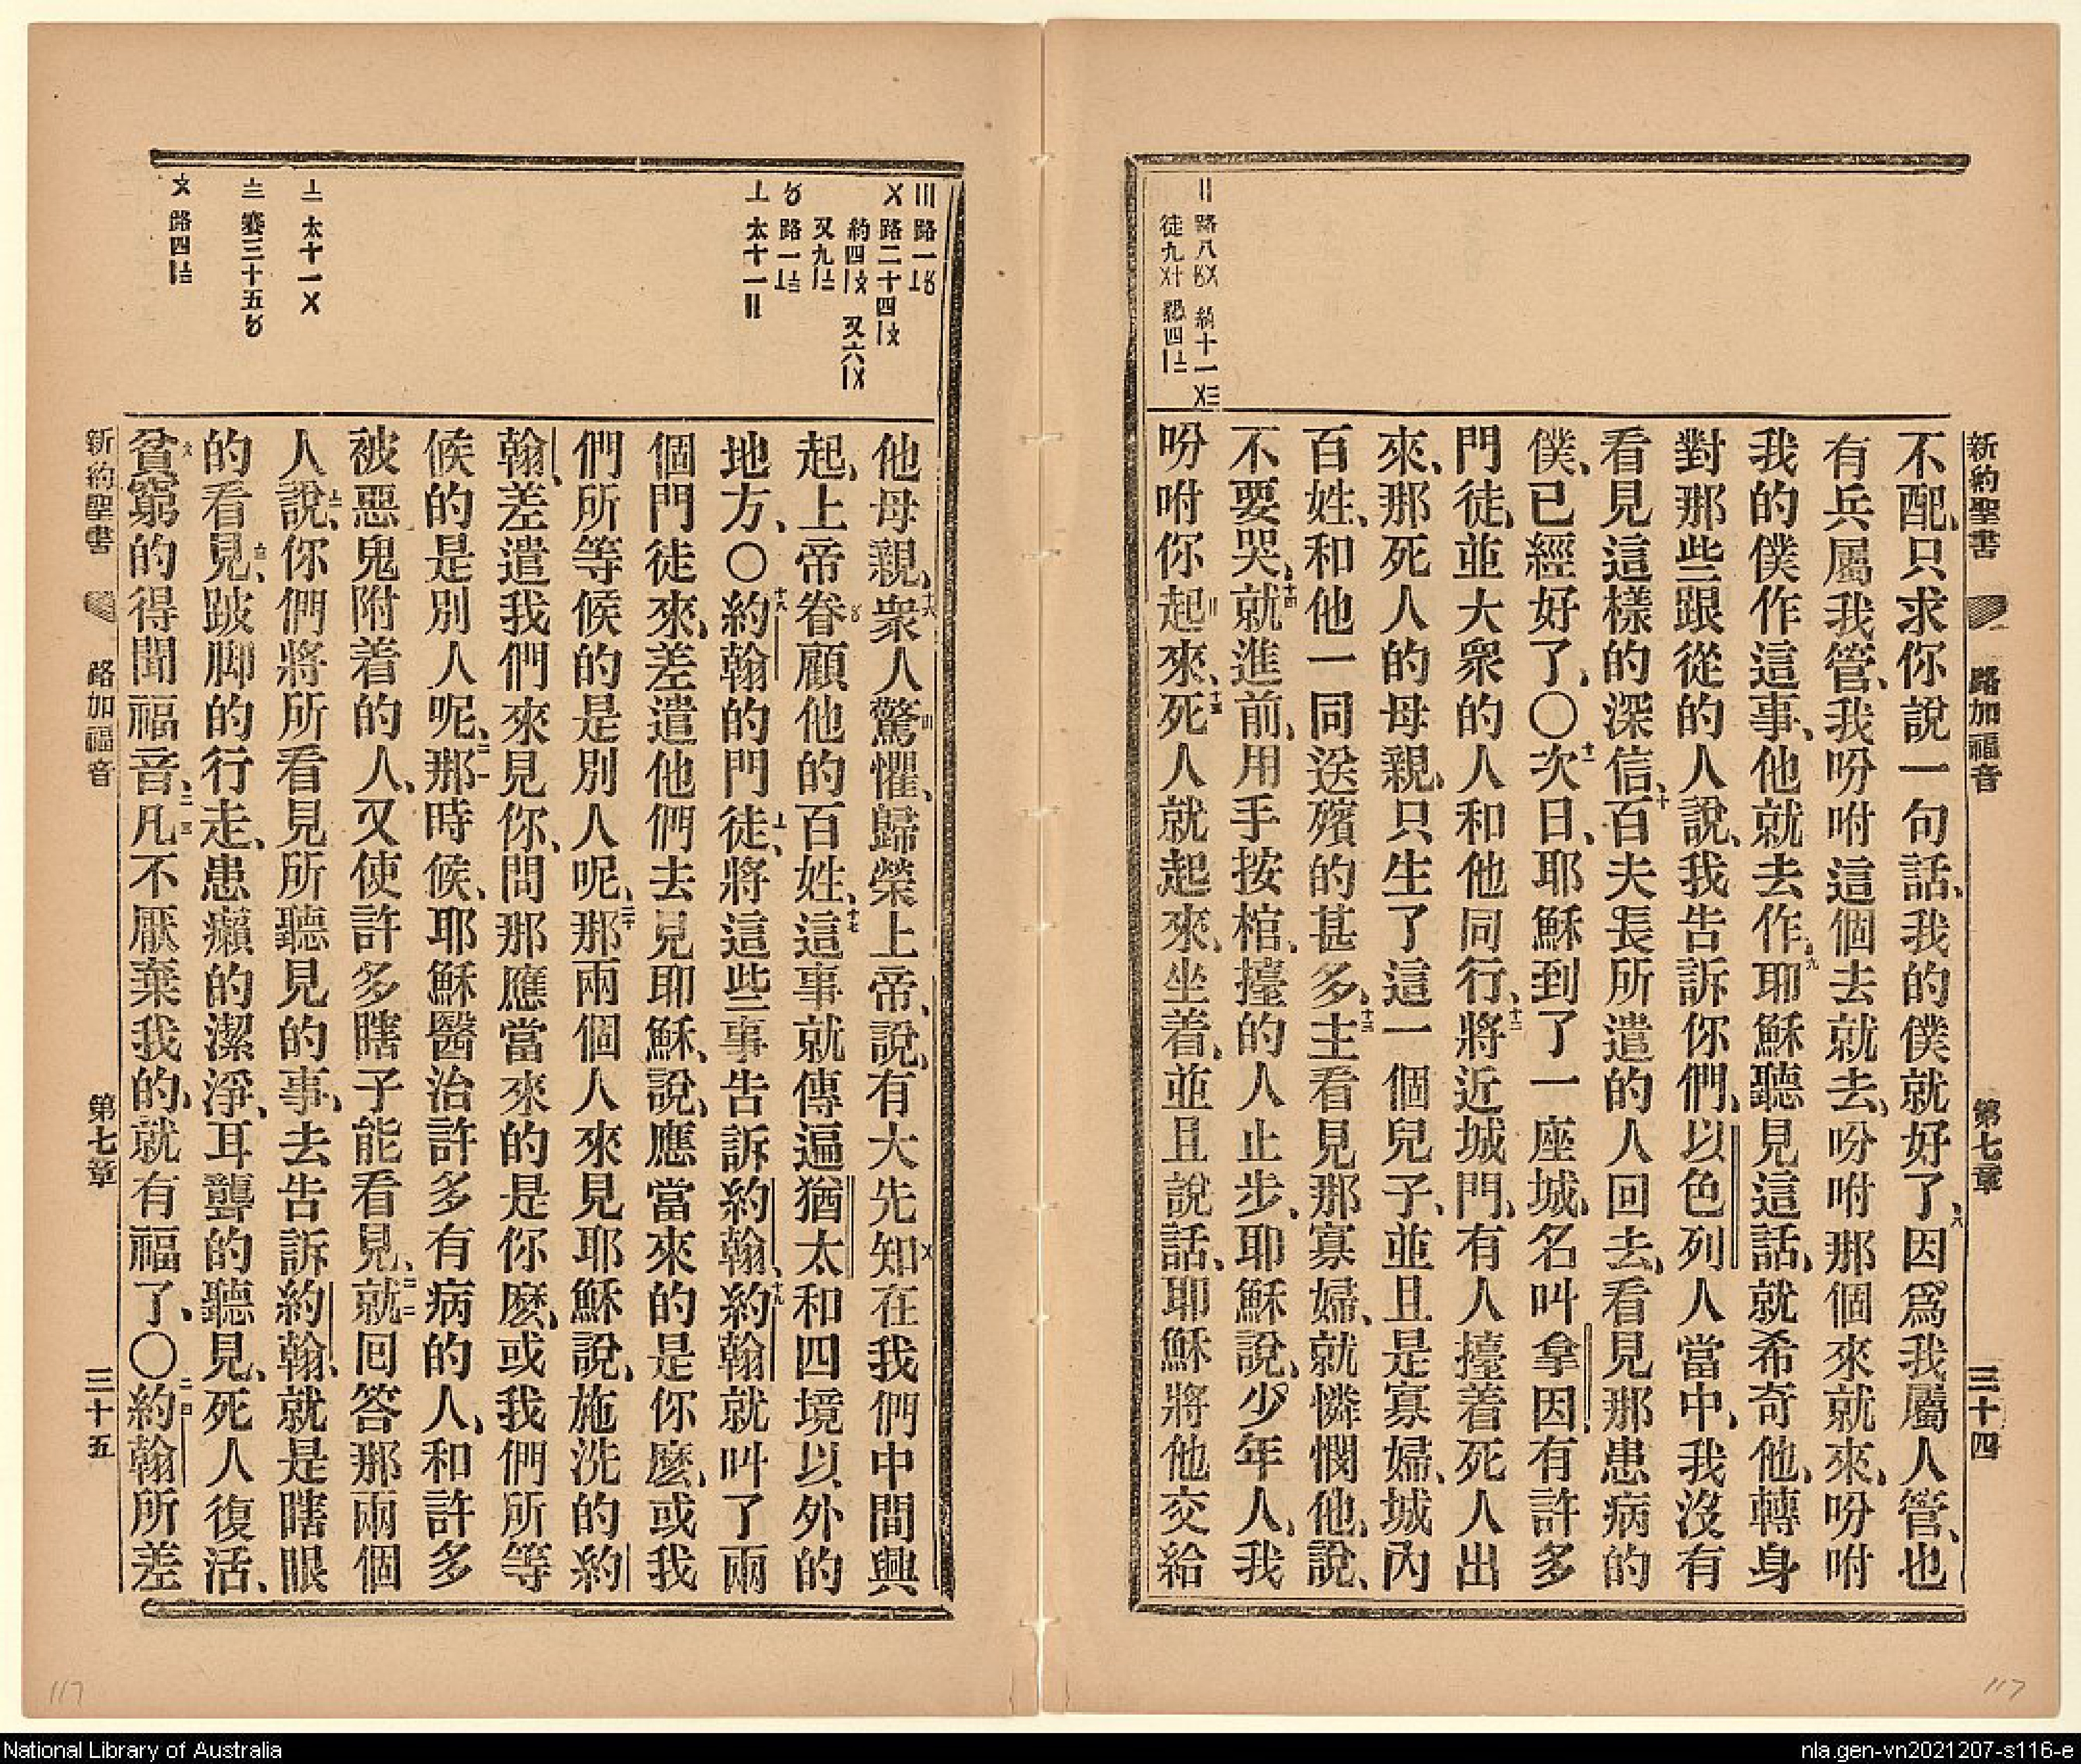 新約聖書 路加福音 第七章 三十四
不配、只求你說一句話、我的僕就好了、八因爲我屬人管、也
有兵屬我管、我吩咐這個去就去、吩咐那個來就來、吩咐
我的僕作這事、他就去作、九耶穌聽見這話、就希奇他、轉身
對那些跟從的人說、我告訴你們、以色列人當中、我沒有
看見這樣的深信、十百夫長所遣的人回去、看見那患病的
僕、已經好了、〇十一次日、耶穌到了一座城、名叫拿因、有許多
門徒、並大衆的人和他同行、十二將近城門、有人擡着死人出
來、那死人的母親、只生了這一個兒子、並且是寡婦、城內
百姓、和他一同送殯的甚多、十三主看見那寡婦、就憐憫他、說、
不要哭、十四就進前、用手按棺、擡的人止步、耶穌說、少年人、我
吩咐你起來、十五死人就起來、坐着、並且說話、耶穌將他交給
〢 路八
徒九
他母親、十六衆人驚懼、歸榮上帝、說、有大先知在我們中間興
起、上帝眷顧他的百姓、十七這事就傳遍猶太和四境以外的
地方、〇十八約翰的門徒、將這些事告訴約翰、十九約翰就叫了兩
個門徒來、差遣他們去見耶穌、說、應當來的是你麽、或我
們所等候的是別人呢、二十那兩個人來見耶穌說、施洗的約
翰、差遣我們來見你、問那應當來的是你麽、或我們所等
候的是別人呢、二一那時候、耶穌醫治許多有病的人、和許多
被惡鬼附着的人、又使許多瞎子能看見、二二就回答那兩個
人說、你們將所看見所聽見的事、去告訴約翰、就是瞎眼
的看見、跛脚的行走、患癩的潔淨、耳聾的聽見、死人復活、
貧窮的得聞福音、二三凡不厭棄我的、就有福了、〇二四約翰所差
〣 路一
〤 路二十四
約四 又六
又九
路一
〦 太十一〢
太十一〤
賽三十五〥
路四
新約聖書 路加福音 第七章 三十五
117
117
National Library of Australia
nla.gen-vn2021207-s116-e